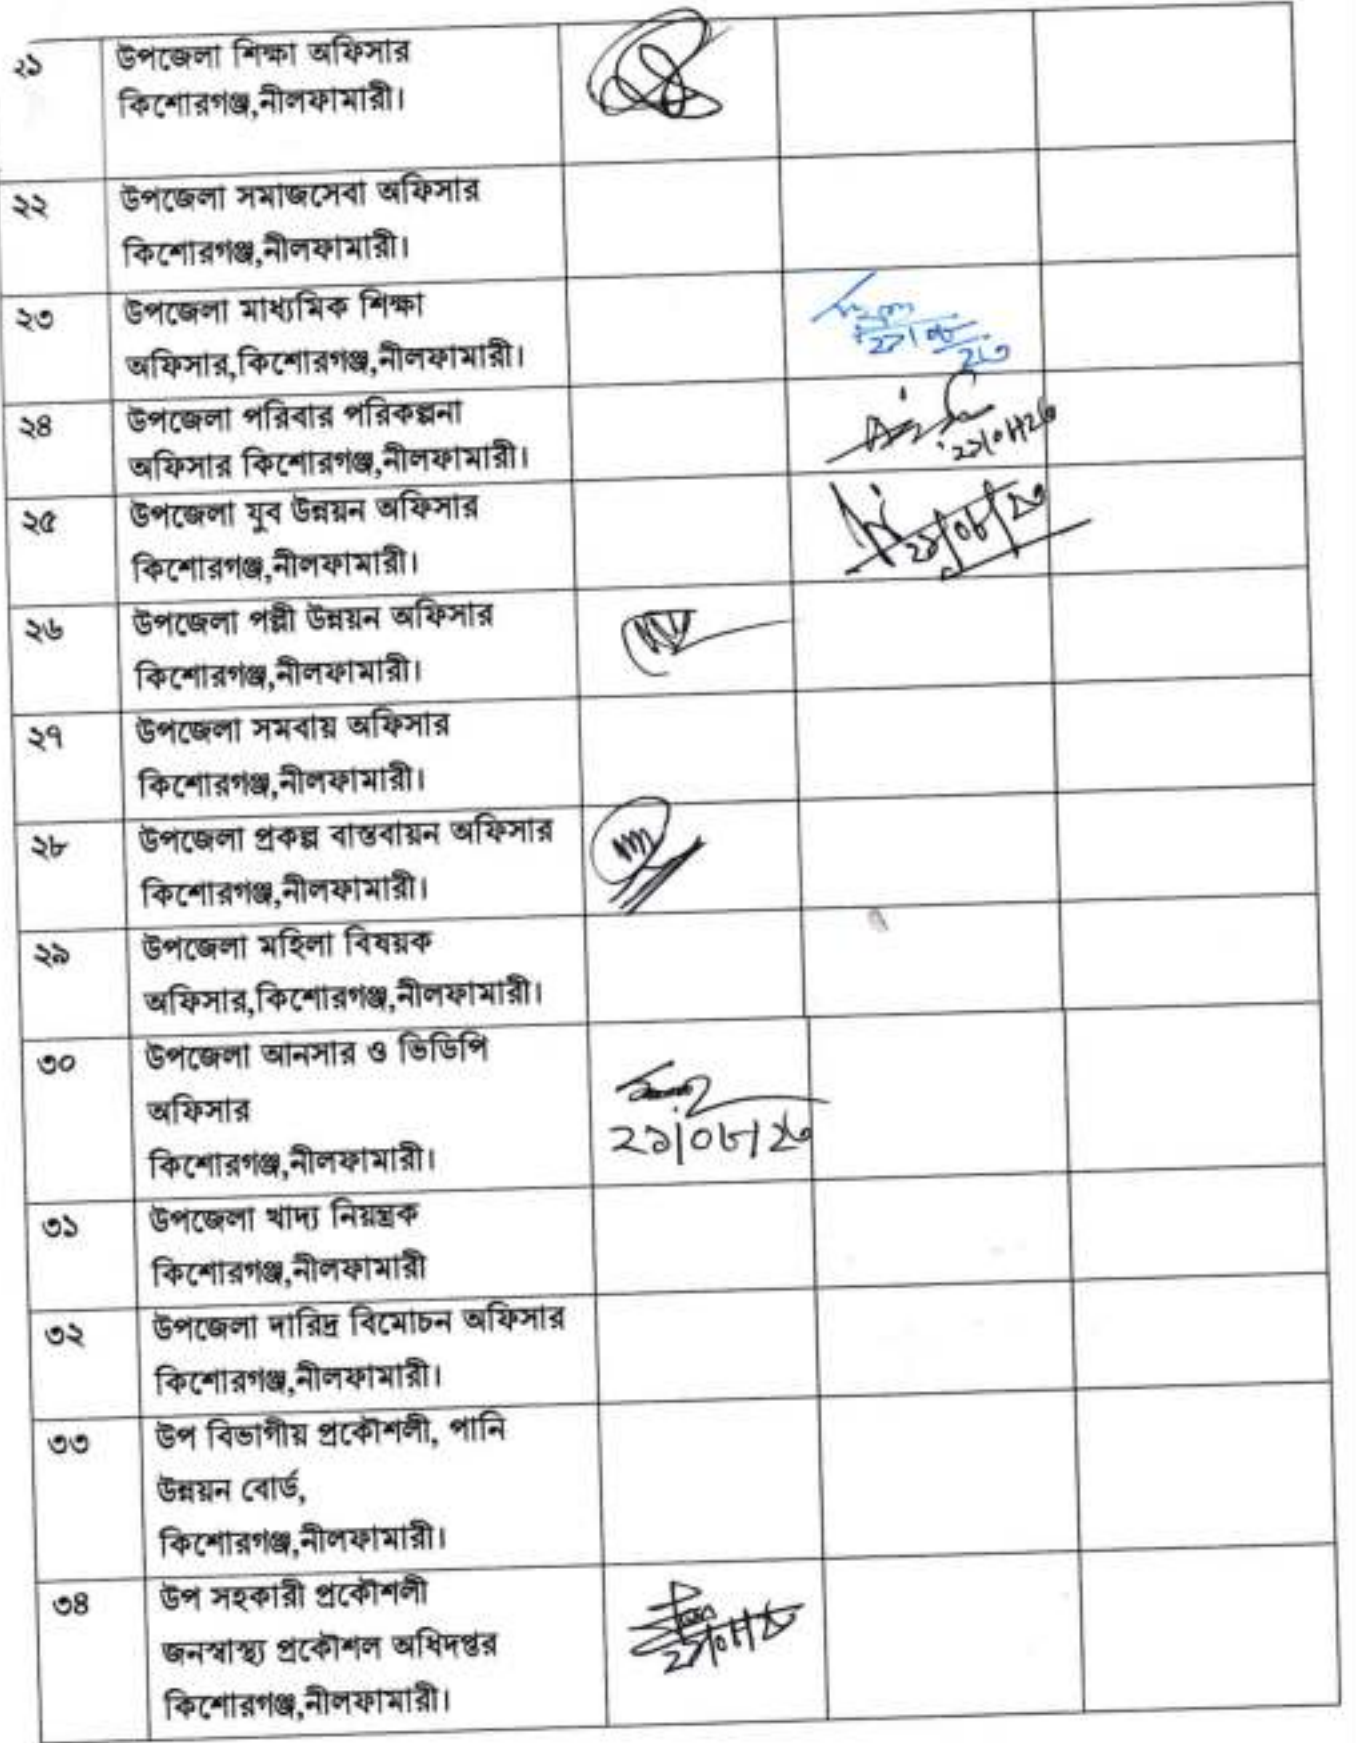 ২১ উপজেলা শিক্ষা অফিসার
কিশোরগঞ্জ,নীলফামারী।
২২ উপজেলা সমাজসেবা অফিসার
কিশোরগঞ্জ,নীলফামারী।
২৩ উপজেলা মাধ্যমিক শিক্ষা
অফিসার,কিশোরগঞ্জ,নীলফামারী।
২১/০৮/২৩
২৪ উপজেলা পরিবার পরিকল্পনা
অফিসার কিশোরগঞ্জ,নীলফামারী।
২১/০৮/২৩
২৫ উপজেলা যুব উন্নয়ন অফিসার
কিশোরগঞ্জ,নীলফামারী।
২১/০৮/২৩
২৬ উপজেলা পল্লী উন্নয়ন অফিসার
কিশোরগঞ্জ,নীলফামারী।
২৭ উপজেলা সমবায় অফিসার
কিশোরগঞ্জ,নীলফামারী।
২৮ উপজেলা প্রকল্প বাস্তবায়ন অফিসার
কিশোরগঞ্জ,নীলফামারী।
২৯ উপজেলা মহিলা বিষয়ক
অফিসার,কিশোরগঞ্জ,নীলফামারী।
৩০ উপজেলা আনসার ও ভিডিপি
অফিসার
কিশোরগঞ্জ,নীলফামারী।
২১/০৮/২৩
৩১ উপজেলা খাদ্য নিয়ন্ত্রক
কিশোরগঞ্জ,নীলফামারী
৩২ উপজেলা দারিদ্র বিমোচন অফিসার
কিশোরগঞ্জ,নীলফামারী।
৩৩ উপ বিভাগীয় প্রকৌশলী, পানি
উন্নয়ন বোর্ড,
কিশোরগঞ্জ,নীলফামারী।
৩৪ উপ সহকারী প্রকৌশলী
জনস্বাস্থ্য প্রকৌশল অধিদপ্তর
কিশোরগঞ্জ,নীলফামারী।
২১/০৮/২৩